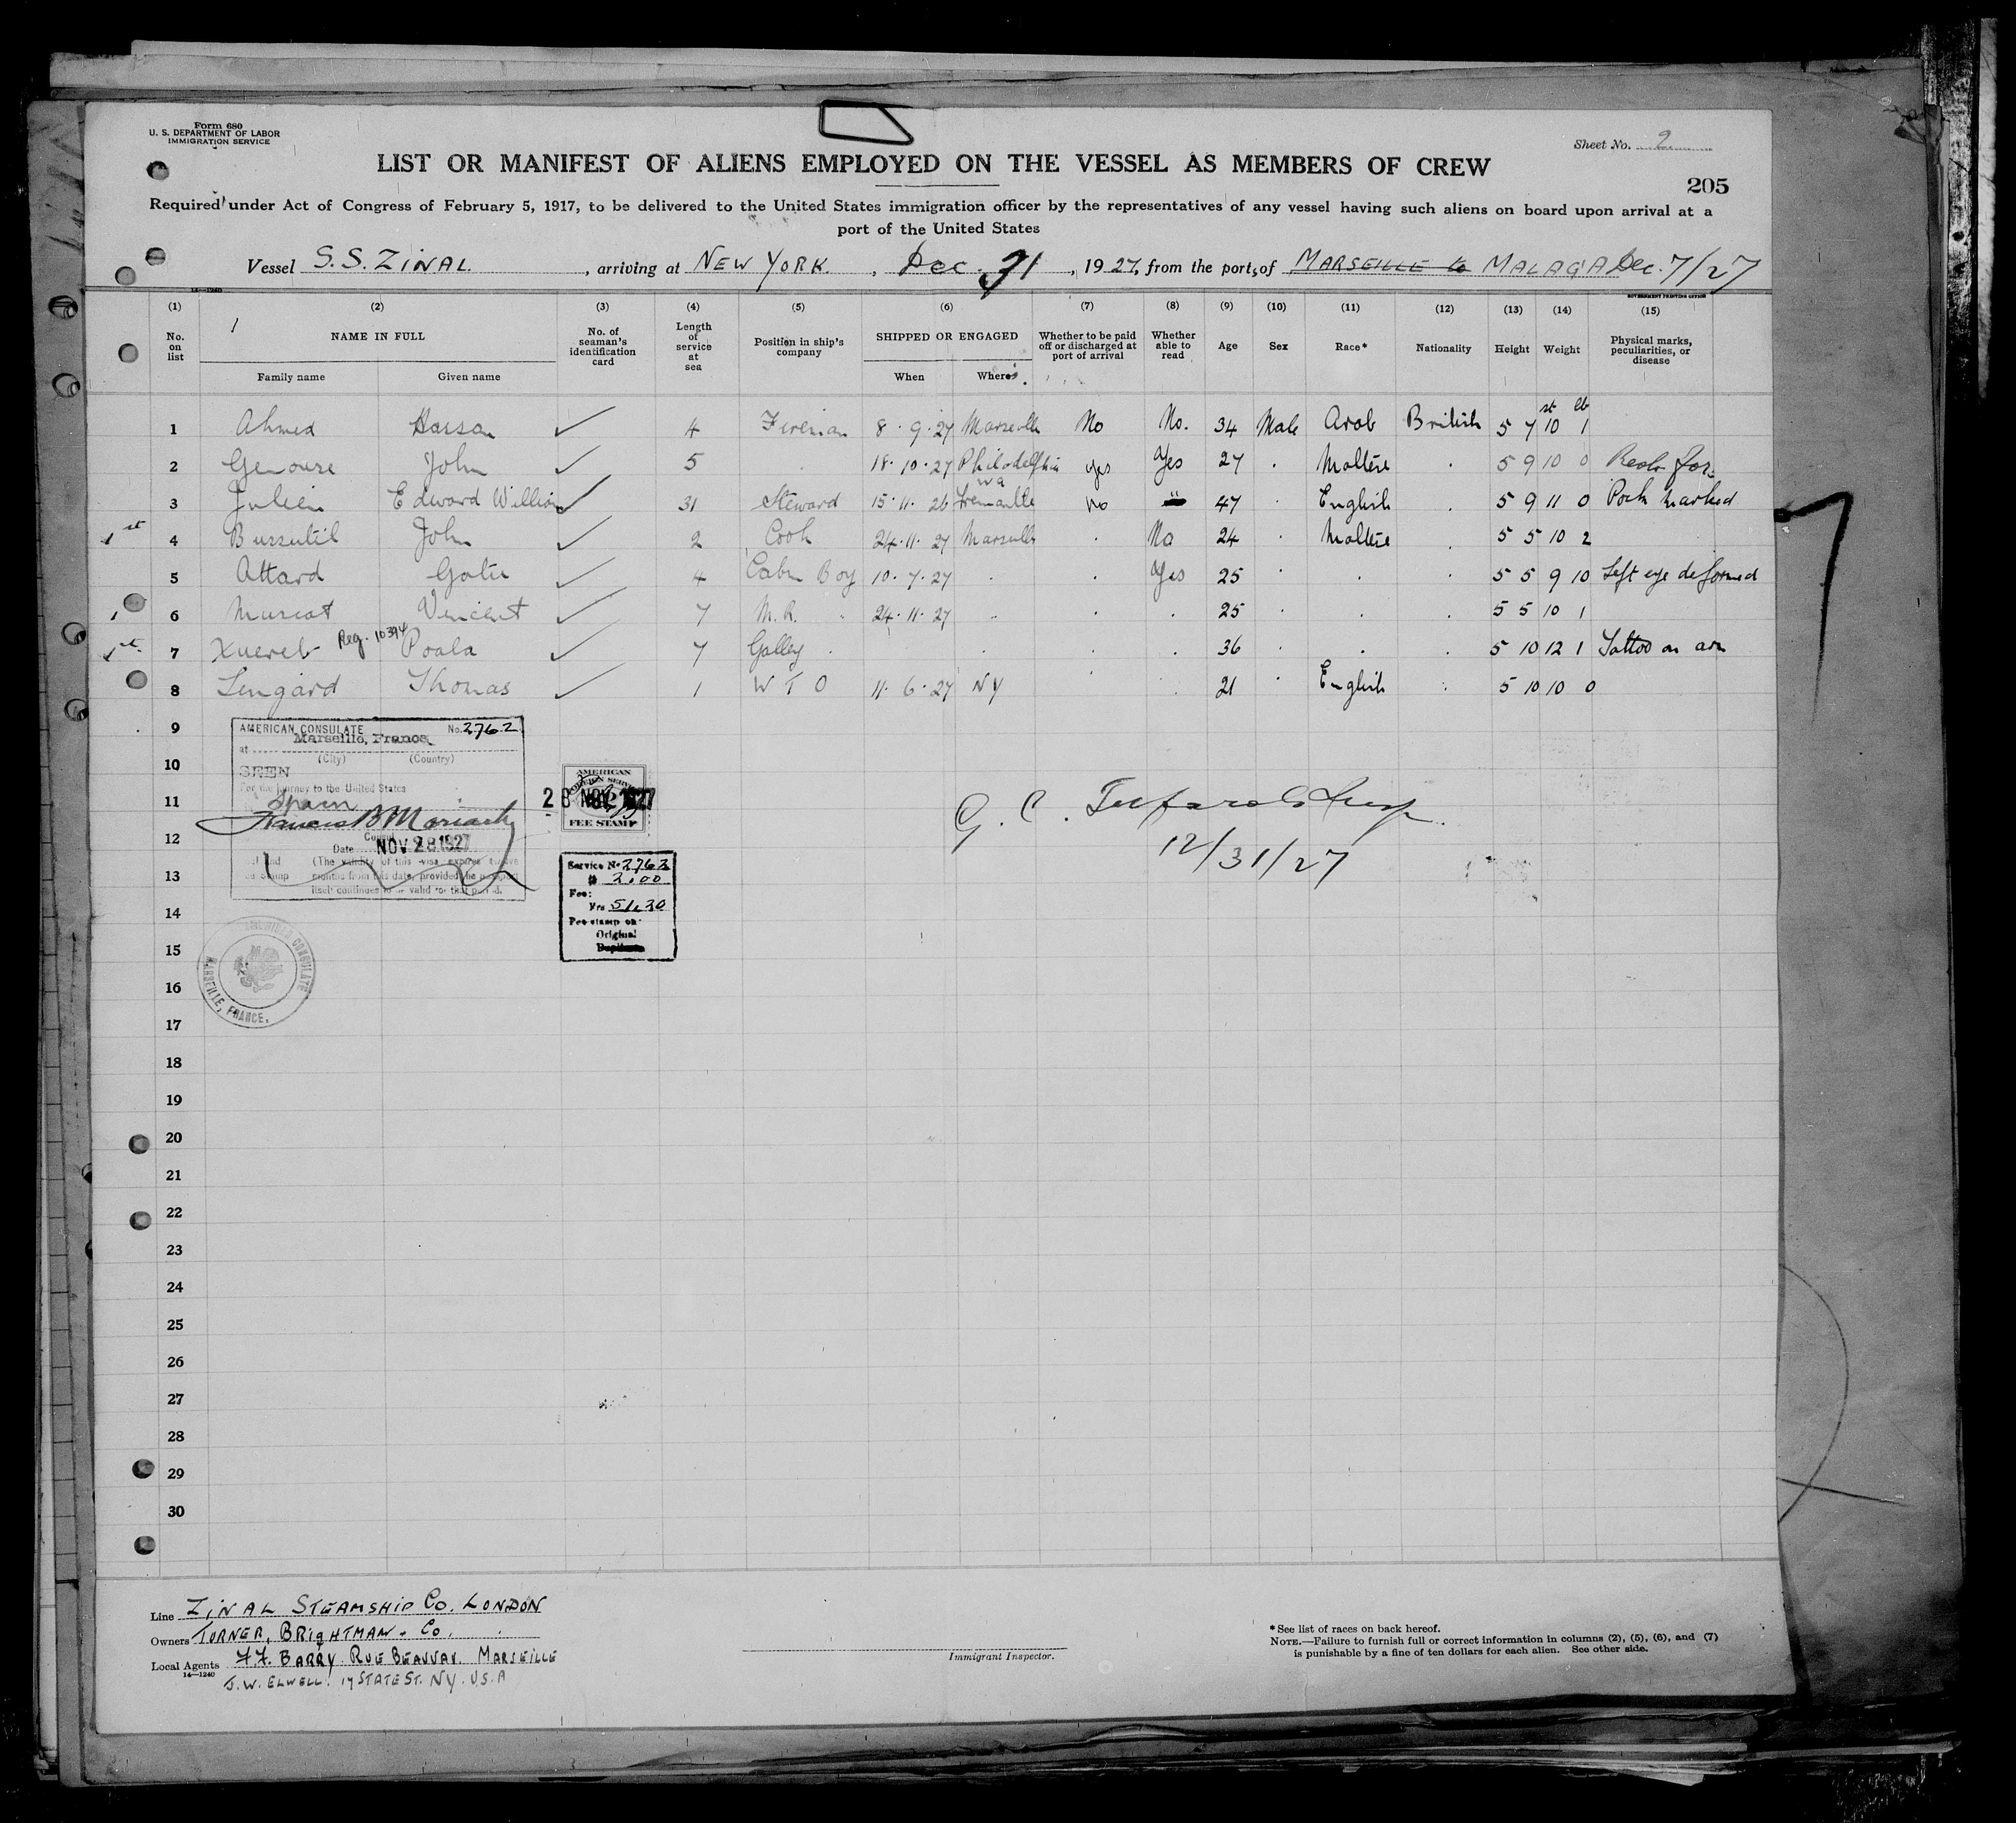 Form 680
U. S. DEPARTMENT OF LABOR
IMMIGRATION SERVICE
Sheet No. 2
LIST OR MANIFEST OF ALIENS EMPLOYED ON THE VESSEL AS MEMBERS OF CREW
205
Required under Act of Congress of February 5, 1917, to be delivered to the United States immigration officer by the representatives of any vessel having such aliens on board upon arrival at a
port of the United States
Vessel S.S. ZINAL, arriving at NEW YORK, Dec. 31, 1927, from the ports of MARSEILLE to MALAGA Dec. 7/27
14—1240
GOVERNMENT PRINTING OFFICE
(1) (2) (3) (4) (5) (6) (7) (8) (9) (10) (11) (12) (13) (14) (15)
No. on list NAME IN FULL No. of seaman's identification card Length of service at sea Position in ship's company SHIPPED OR ENGAGED Whether to be paid off or discharged at port of arrival Whether able to read Age Sex Race* Nationality Height Weight Physical marks, peculiarities, or disease
Family name Given name When Where
st lb
1 Ahmed Hassan ✓ 4 Fireman 8.9.27 Marseille No No. 34 Male Arab British 5 7 10 1
2 Genoure John ✓ 5 18.10.27 Philadelphia yes Yes 27 . Maltese . 5 9 10 0
3 Julien Edward William ✓ 31 Steward 15.11.26 Fremantle WA No " 47 . English . 5 9 11 0 Pock marked
1st 4 Bussutil John ✓ 2 Cook 24.11.27 Marseille . No 24 . Maltese . 5 5 10 2
5 Attard Gatu ✓ 4 Cabin Boy 10.7.27 . . Yes 25 . . . 5 5 9 10 Left eye deformed
6 Muscat Vincent ✓ 7 M.R. 24.11.27 . . . 25 . . . 5 5 10 1
1st 7 Xuereb Reg. 10394 Poala ✓ 7 Galley . . . . 36 . . . 5 10 12 1 Tattoo on arm
8 Lengard Thomas ✓ 1 W T O 11.6.27 NY 21 . English . 5 10 10 0
9
AMERICAN CONSULATE No. 2762
at Marseille, France
(City) (Country)
10
SEEN
For the journey to the United States
11
Spain
Francis B Moriarty
12
Consul
Date NOV 28 1927
(The validity of this visa expires twelve
13
months from this date, provided the passport
itself continues to be valid for that period.
AMERICAN
FOREIGN SERVICE
28 NOV 1927
FEE STAMP
Service No 2762
$ 2.00
Fee:
Frs 51.20
Fee stamp on
Original
Duplicate
G. C.
12/31/27
14
15
AMERICAN CONSULATE
MARSEILLE, FRANCE.
16
17
18
19
20
21
22
23
24
25
26
27
28
29
30
Line ZINAL STEAMSHIP Co. LONDON
Owners TURNER, BRIGHTMAN & Co.
Local Agents 77. BARRY. RUE BEAUVAU. MARSEILLE
14—1240
J. W. ELWELL. 17 STATE ST. NY. U.S.A
Immigrant Inspector.
* See list of races on back hereof.
NOTE.—Failure to furnish full or correct information in columns (2), (5), (6), and (7)
is punishable by a fine of ten dollars for each alien. See other side.